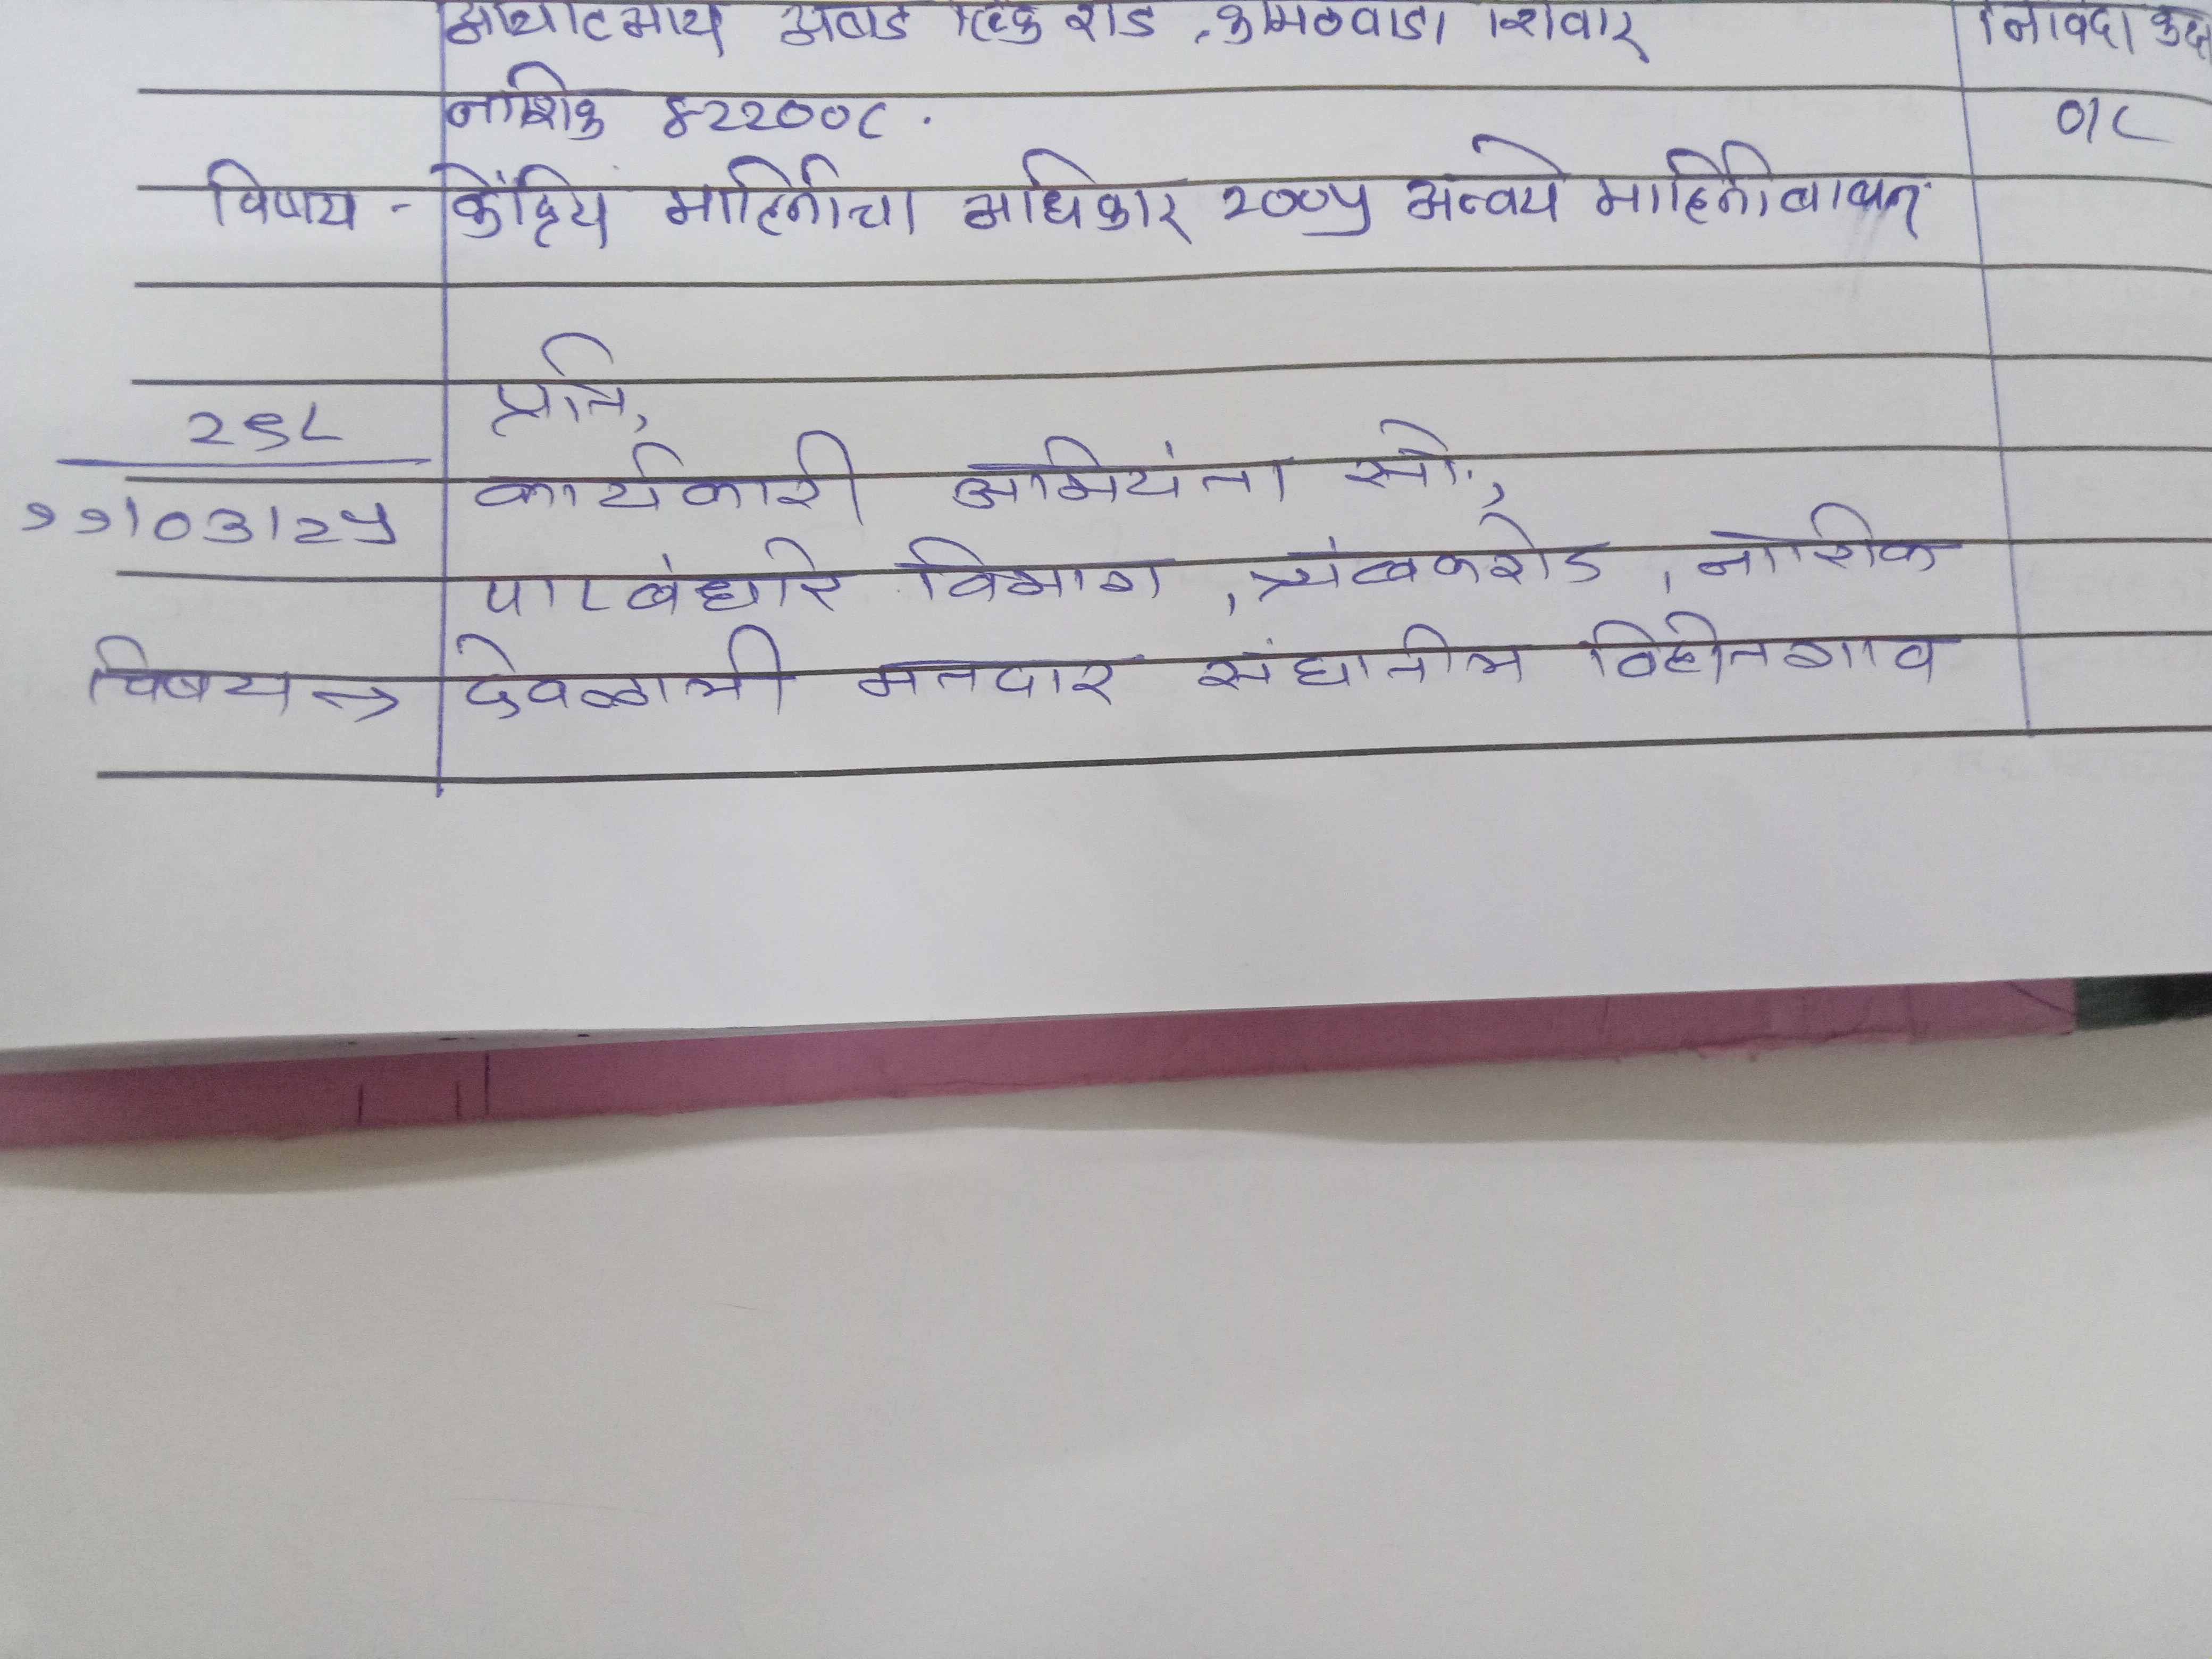 अंबड लिंक रोड, कामठवाडा शिवार निविदा कक्ष
नाशिक ४२२००८. ०१८
विषय - केंद्रिय माहितीचा अधिकार २००५ अन्वये माहितीबाबत
प्रति,
२९८
कार्यकारी अभियंता सो.,
११।०३।२५
पाटबंधारे विभाग, त्र्यंबकरोड, नाशिक
विषय → देवळाली मतदार संघातील विहीतगाव